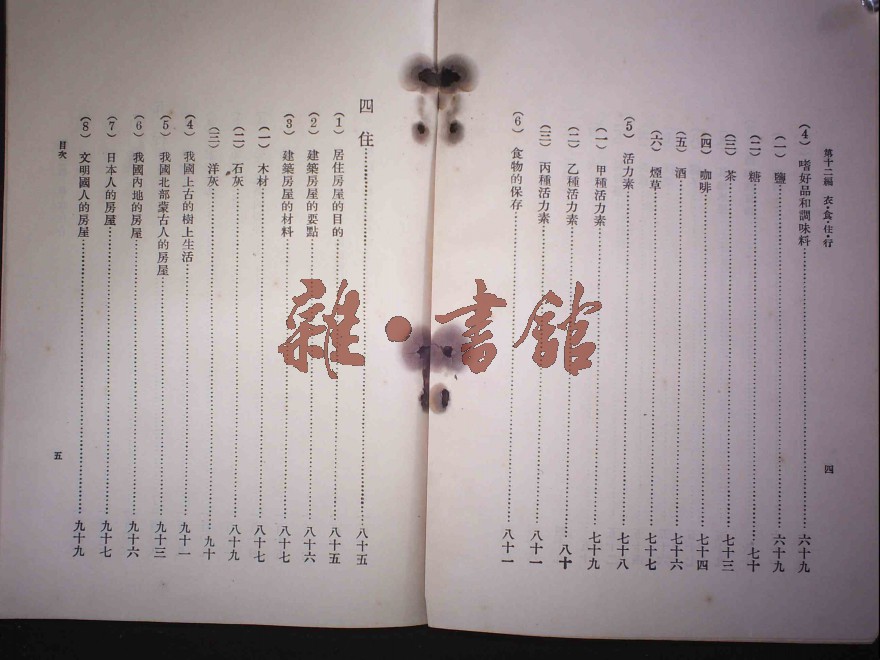 第十二編 衣·食·住·行
(4) 嗜好品和調味料……六十九
(一) 鹽……六十九
(二) 糖……七十
(三) 茶……七十三
(四) 咖啡……七十四
(五) 酒……七十六
(六) 煙草……七十七
(5) 活力素……七十八
(一) 甲種活力素……七十九
(二) 乙種活力素……八十
(三) 丙種活力素……八十一
(6) 食物的保存……八十一
四
四 住……八十五
(1) 居住房屋的目的……八十五
(2) 建築房屋的要點……八十六
(3) 建築房屋的材料……八十七
(一) 木材……八十七
(二) 石灰……八十九
(三) 洋灰……九十
(4) 我國上古的樹上生活……九十一
(5) 我國北部蒙古人的房屋……九十三
(6) 我國內地的房屋……九十六
(7) 日本人的房屋……九十七
(8) 文明國人的房屋……九十九
目次
五
雜·書館